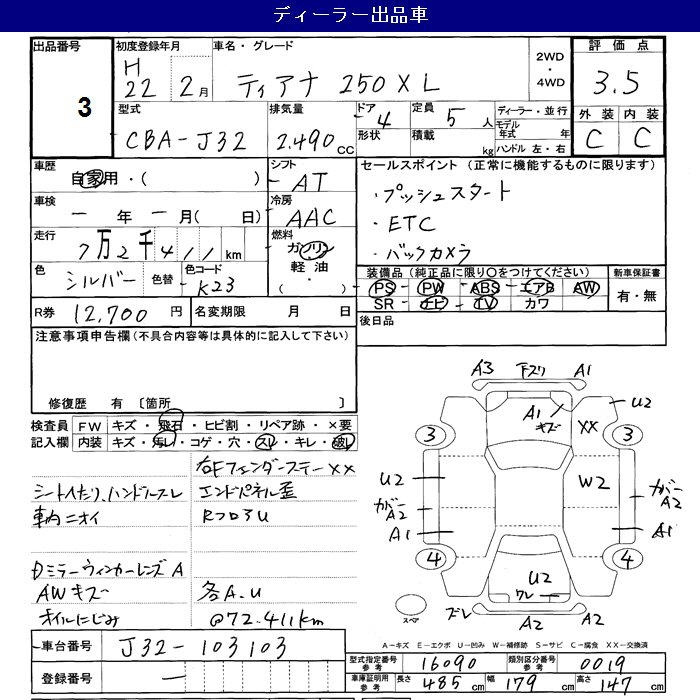 ディーラー出品車
出品番号 3
初度登録年月 H 22 2月
車名・グレード ティアナ 250XL
2WD・4WD
評価点 3.5
外装 C 内装 C
型式 CBA-J32
排気量 2.490 CC
ドア 4 形状
定員 5人 積載 kg
ディーラー・並行
モデル年式 年
ハンドル 左・右
車歴 自家用・( )
車検 ー年 ー月( 日)
走行 7万2千411km
色 シルバー 色替
色コード K23
シフト AT
冷房 AAC
燃料 ガソリン 軽油 ( ・ )
セールスポイント(正常に機能するものに限ります)
・プッシュスタート
・ETC
・バックカメラ
装備品(純正品に限り○をつけてください)
PS・PW・ABS・エアB AW
SR・ナビ・TV カワ
新車保証書 有・無
R券 12,700円
名変期限 月 日
後日品
注意事項申告欄(不具合内容等は具体的に記入して下さい)
修復歴 有 〔箇所 〕
検査員記入欄
FW キズ・飛石・ヒビ割・リペア跡・×要
内装 キズ・汚レ・コゲ・穴・スレ・キレ・破レ
右Fフェンダーステー××
シートへたり、ハンドルスレ エンドパネル歪
車内ニオイ RフロアU
Dミラーウィンカーレンズ A
AWキズ 各A.U
オイルにじみ @72.411km
A3 下スリ A1
U2
A1 キズ
XX
3 3
U2 W2
カバーA2 カバーA2
A1 A1
4 4
U2
ワレ
スペア
ズレ A2 A2
A-キズ E-エクボ U-凹み W-補修跡 S-サビ C-腐食 XX-交換済
車台番号 J32-103103
登録番号 ー
型式指定番号 参考 16090
類別区分番号 参考 0019
車庫証明用 参考 長さ 485cm 幅 179cm 高さ 147cm